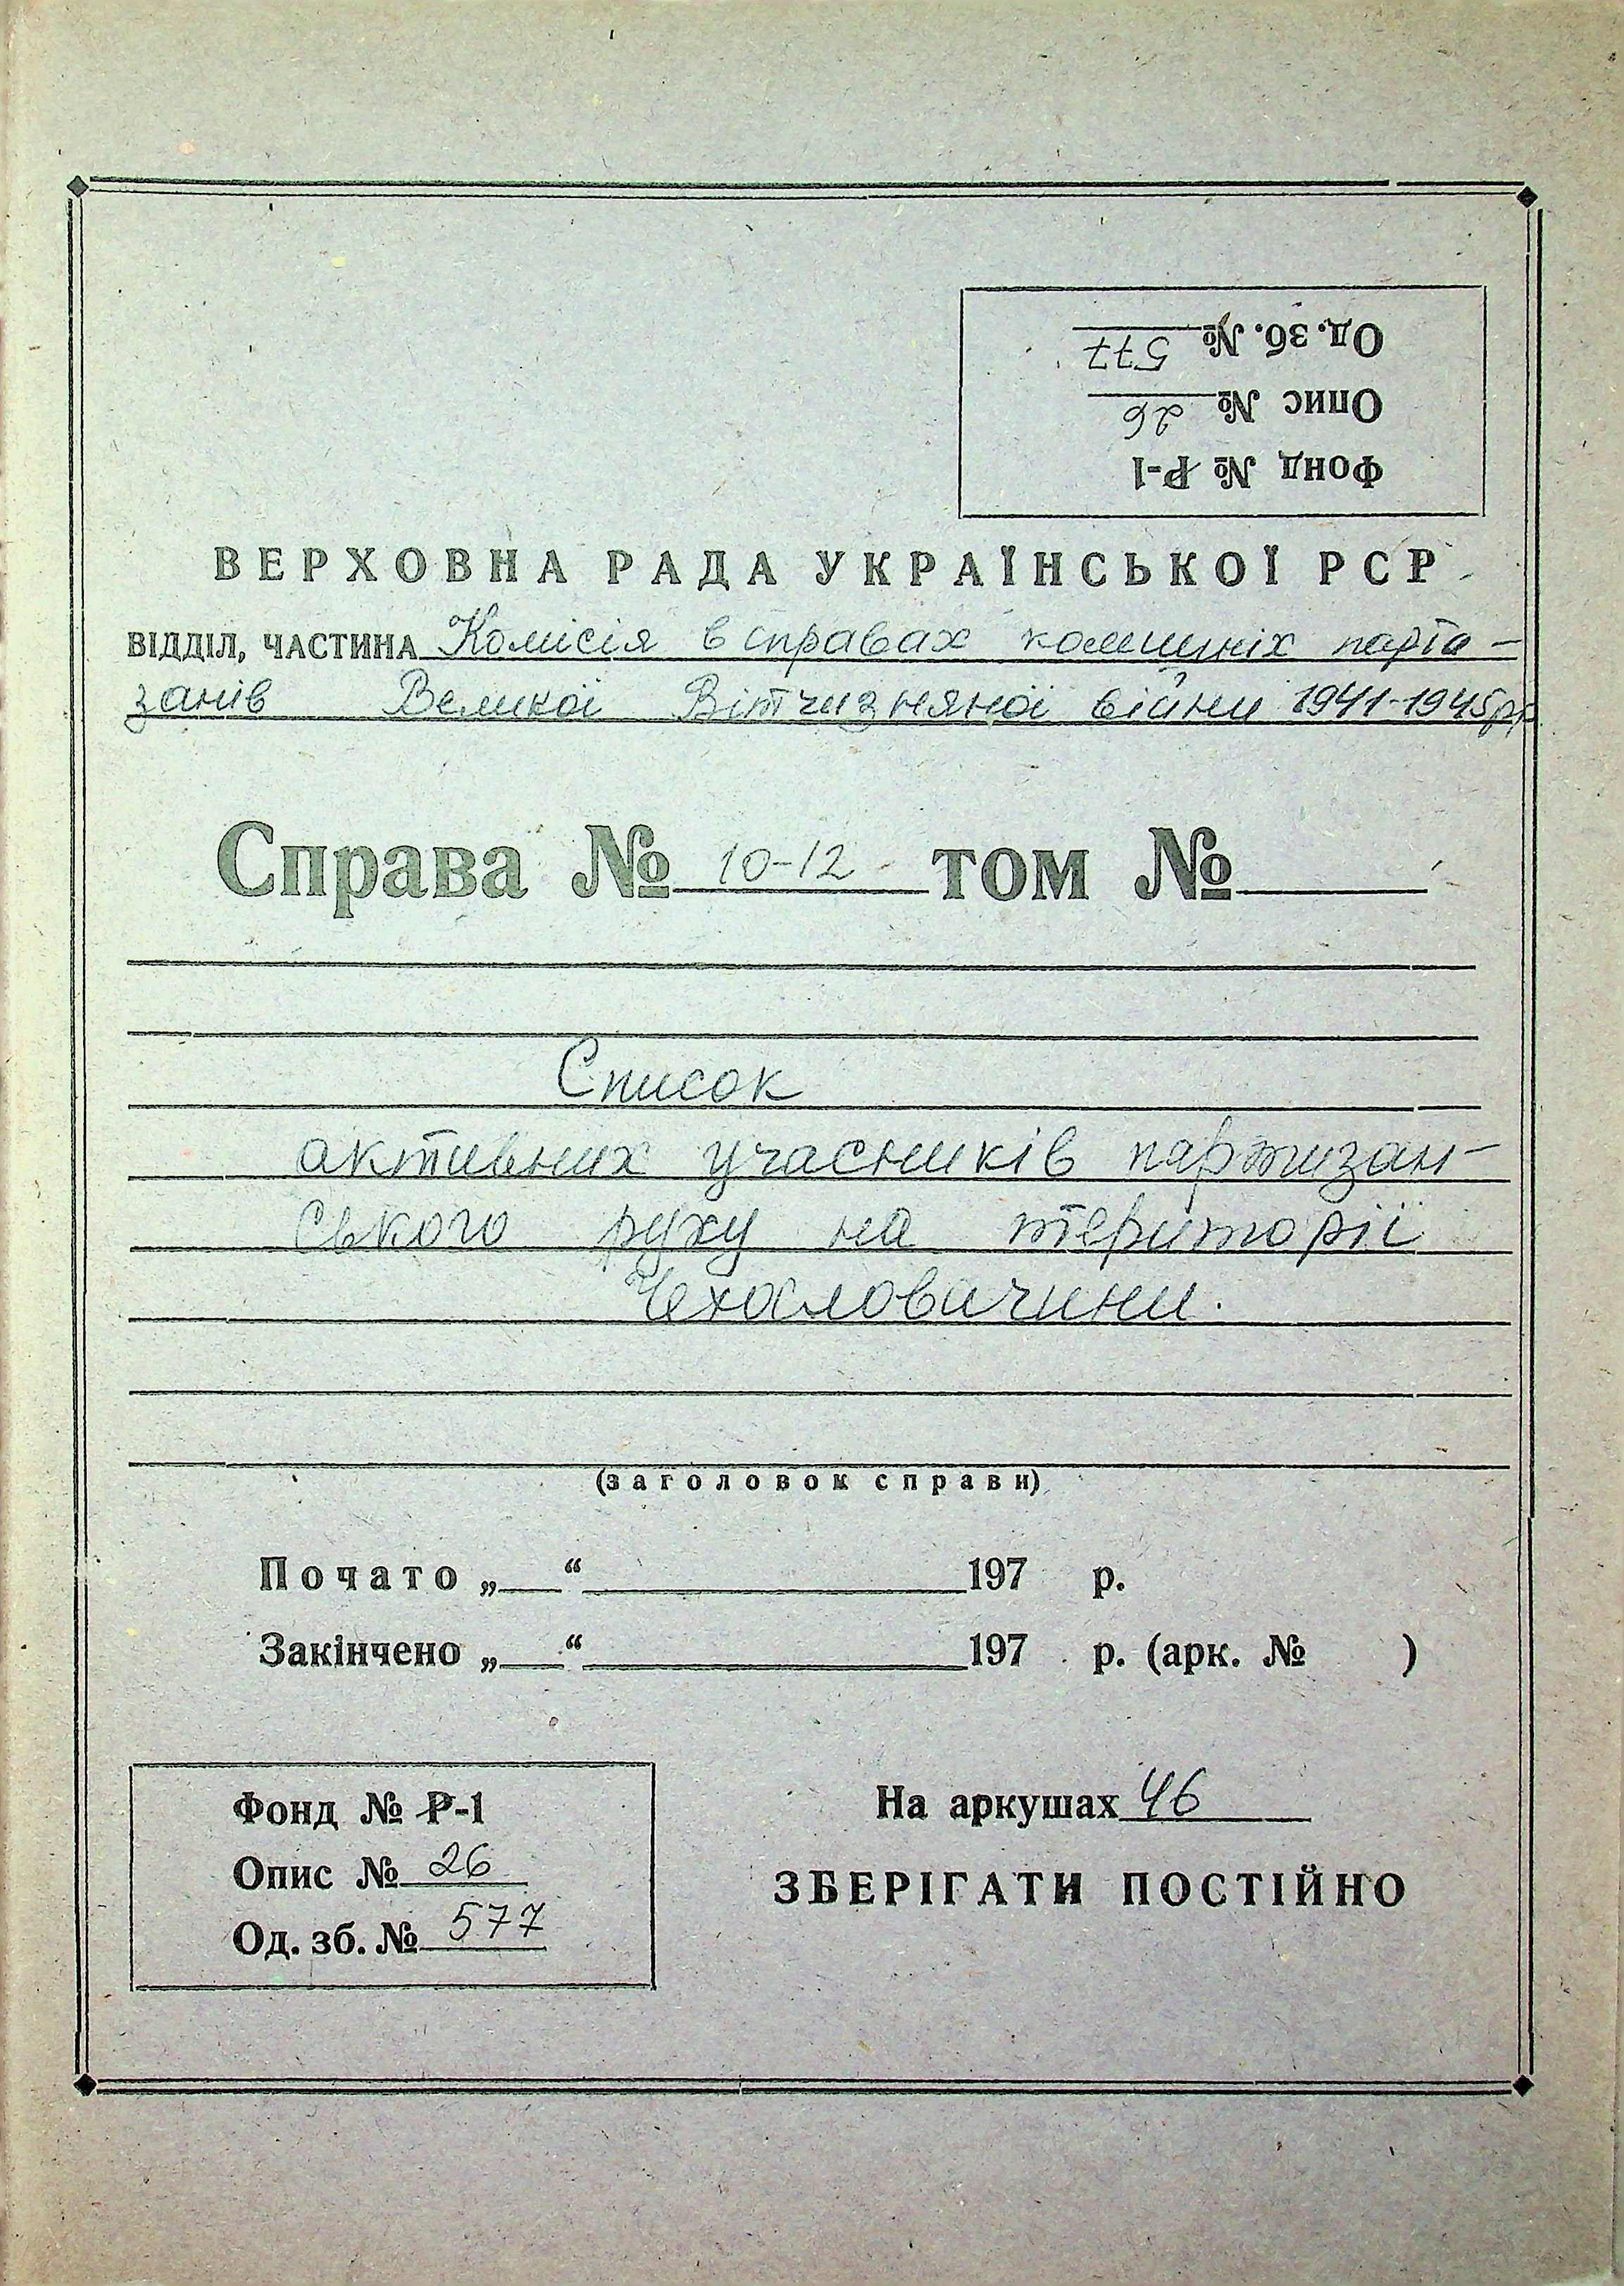 Од. зб. № 577
Опис № 26
Фонд № Р-1
ВЕРХОВНА РАДА УКРАЇНСЬКОЇ РСР
ВІДДІЛ, ЧАСТИНА Комісія в справах колишніх парти-
занів Великої Вітчизняної війни 1941-1945рр.
Справа № 10-12 том №
Список
активних учасників партизан-
ського руху на території
Чехословаччини.
(заголовок справи)
Почато „ “ 197 р.
Закінчено „ “ 197 р. (арк. № )
Фонд № Р-1
Опис № 26
Од. зб. № 577
На аркушах 46
ЗБЕРІГАТИ ПОСТІЙНО